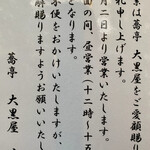 素は蕎亭 大黒屋をご愛顧賜り
礼申し上げます。
月二日より営業いたします。
面の間、昼営業(十二時~十五
となります。
不便をおかけいたしますが、
賜りますようお願いいたし
蕎亭 大黒屋